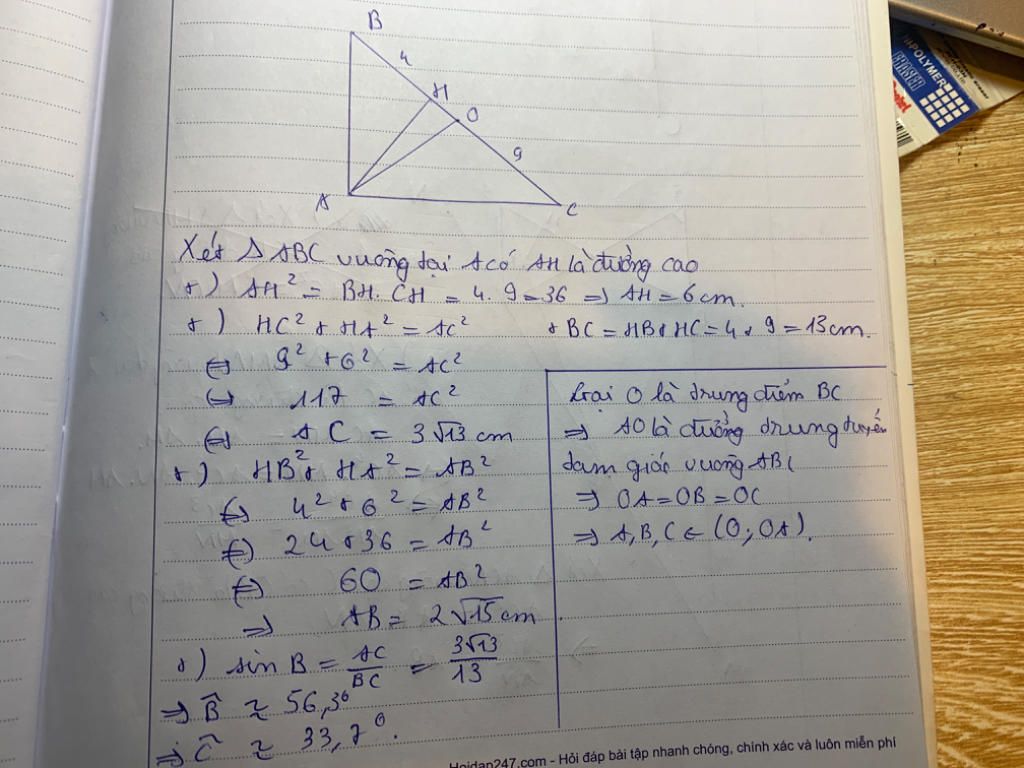 B
4
H
O
9
A
C
Xét Δ ABC vuông tại A có AH là đường cao
+) AH² = BH. CH = 4. 9 = 36 => AH = 6 cm.
+) HC² + HA² = AC²
+ BC = HB + HC = 4 + 9 = 13 cm.
<=> 9² + 6² = AC²
<=> 117 = AC²
<=> AC = 3√13 cm
+) HB² + HA² = AB²
<=> 4² + 6² = AB²
<=> 24 + 36 = AB²
<=> 60 = AB²
=> AB = 2√15 cm.
+) sin B = AC/BC = 3√13/13
=> B̂ ≈ 56,3°
=> Ĉ ≈ 33,7°.
Gọi O là trung điểm BC
=> AO là đường trung tuyến
tam giác vuông ABC
=> OA = OB = OC
=> A, B, C ∈ (O; OA).
Hoidap247.com - Hỏi đáp bài tập nhanh chóng, chính xác và luôn miễn phí
POLYMER